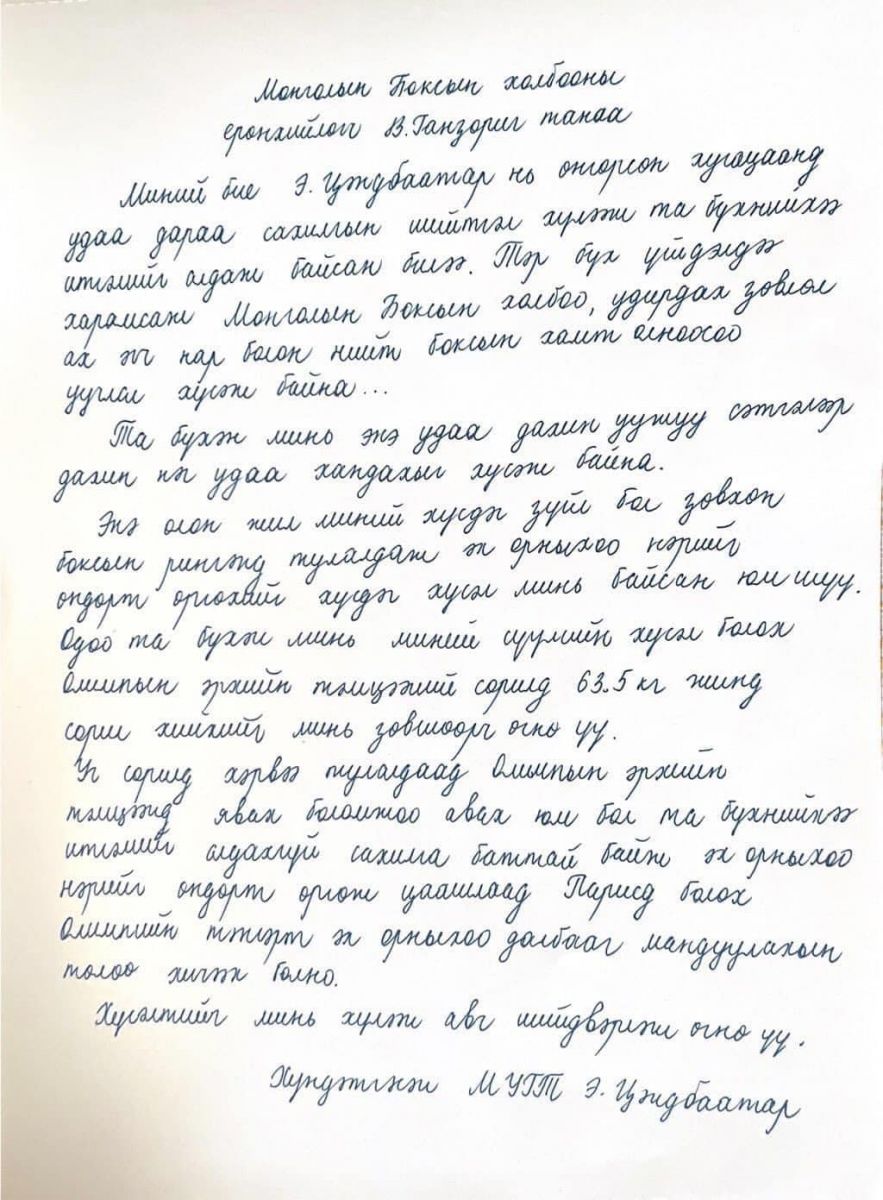 Монголын Боксын холбооны
ерөнхийлөгч В.Ганзориг танаа
Миний бие Э. Цэндбаатар нь өнгөрсөн хугацаанд
удаа дараа сахилгын шийтгэл хүлээж та бүхнийхээ
итгэлийг алдаж байсан билээ. Тэр бүх үйлдэлдээ
харамсаж Монголын Боксын холбоо, удирдах зөвлөл
ах эгч нар болон нийт боксын хамт олноосоо
уучлал хүсэж байна...
Та бүхэн минь энэ удаа дахин уужуу сэтгэлээр
дахин нэг удаа хандахыг хүсэж байна.
Энэ олон жил миний хүсдэг зүйл бол зөвхөн
боксын рингэнд тулалдаж эх орныхоо нэрийг
өндөрт өргөхийг хүсдэг хүсэл минь байсан юм шүү.
Одоо та бүхэн минь миний сүүлийн хүсэл болох
Олимпын эрхийн тэмцээний сорилд 63.5 кг жинд
сорил хийхийг минь зөвшөөрч өгнө үү.
Уг сорилд хэрвээ тулалдаад Олимпын эрхийн
тэмцээнд явах боломжоо авах юм бол та бүхнийхээ
итгэлийг алдахгүй сахилга баттай байж эх орныхоо
нэрийг өндөрт өргөж цаашлаад Парист болох
Олимпийн тэнгэрт эх орныхоо далбааг мандуулахын
төлөө хичээх болно.
Хүсэлтийг минь хүлээж авч шийдвэрлэж өгнө үү.
Хүндэтгэсэн МУГТ Э. Цэндбаатар